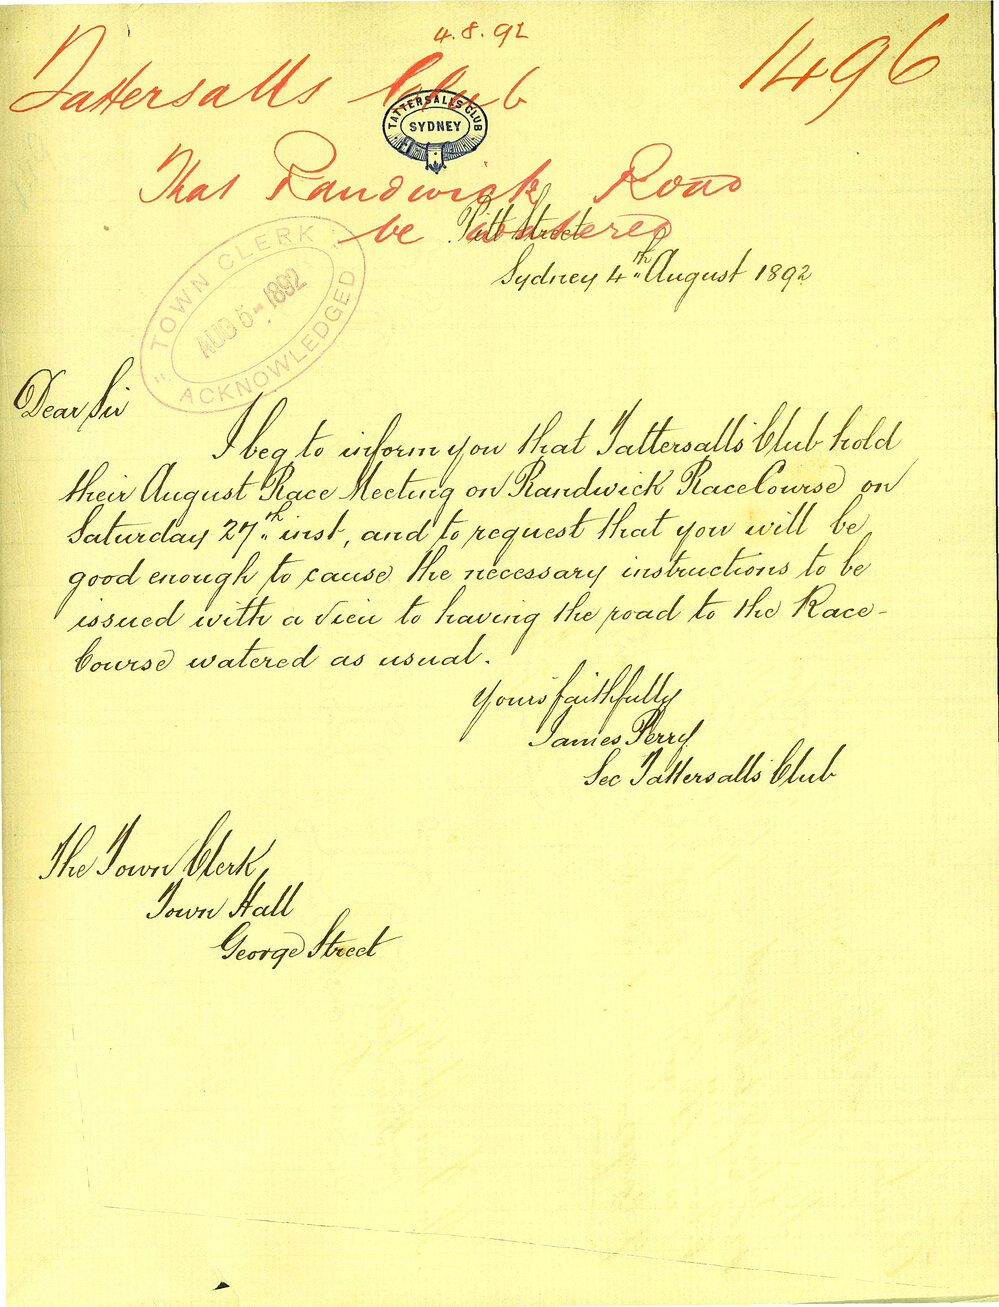 4.8.92
Tattersalls Club
1496
TATTERSALLS CLUB
SYDNEY
That Randwick Road
be watered
Pitt Street
Sydney 4th August 1892
"TOWN CLERK"
AUG 5-1892
ACKNOWLEDGED
Dear Sir
I beg to inform you that Tattersalls Club hold
their August Race Meeting on Randwick Race Course on
Saturday 27th inst, and to request that you will be
good enough to cause the necessary instructions to be
issued with a view to having the road to the Race-
Course watered as usual.
Yours faithfully
James Perry
Sec Tattersalls Club
The Town Clerk
Town Hall
George Street